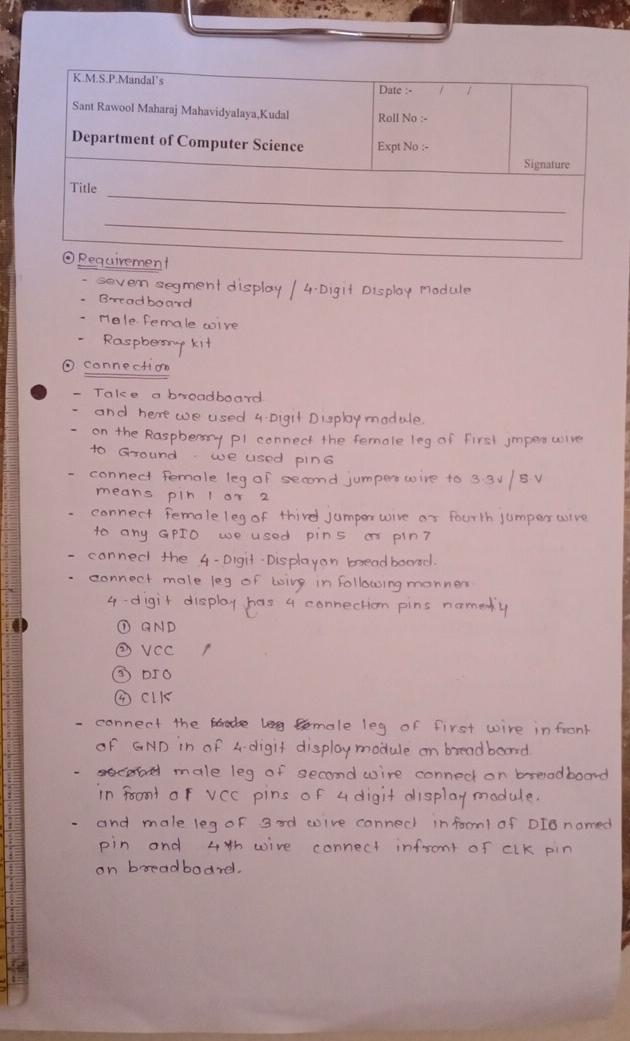 K.M.S.P.Mandal's
Sant Rawool Maharaj Mahavidyalaya,Kudal
Department of Computer Science
Date :- / /
Roll No :-
Expt No :-
Signature
Title
Requirement
- seven segment display / 4-Digit Display Module
- Breadboard
- Male female wire
- Raspberry kit
connection
- Take a breadboard.
- and here we used 4-Digit Display module.
- on the Raspberry pi connect the female leg of First jmper wire
to Ground. we used pin 6
- connect female leg of second jumper wire to 3.3v / 5 V
means pin 1 or 2
- connect female leg of third jumper wire or fourth jumper wire
to any GPIO we used pin 5 or pin 7
- connect the 4-Digit-Display on breadboard.
- connect male leg of wire in following manner.
4-digit display has 4 connection pins namely
① GND
② VCC
③ DIO
④ CLK
- connect the male leg of first wire in front
of GND in of 4-digit display module on breadboard.
- male leg of second wire connect on breadboard
in front of VCC pins of 4 digit display module.
- and male leg of 3rd wire connect infront of DIO named
pin and 4th wire connect infront of CLK pin
on breadboard.